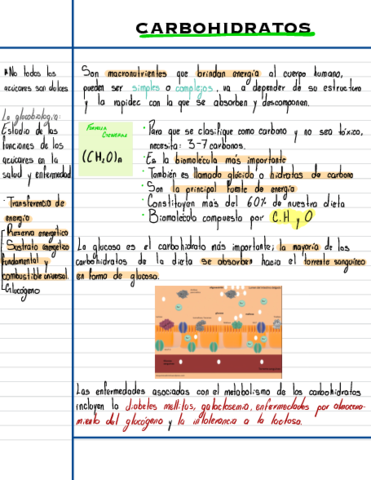 CARBOHIDRATOS
*No todos los
azúcares son dulces
La glucobiología:
Estudio de las
funciones de los
azúcares en la
salud y enfermedad
- Transferencia de
energía
- Reserva energético
- Sustrato energético
fundamental y
combustible universal
- Glucógeno
Son macronutrientes que brindan energía al cuerpo humano,
pueden ser simples o complejos, va a depender de su estructura
y la rapidez con la que se absorben y descomponen.
FORMULA
(CH2O)n
· Para que se clasifique como carbono y no sea tóxico,
necesita: 3-7 carbonos.
· Es la biomolécula más importante
· También es llamado glúcido o hidratos de carbono
· Son la principal fuente de energía
· Constituyen más del 60% de nuestra dieta
· Biomolécula compuesta por C,H y O
La glucosa es el carbohidrato más importante; la mayoría de los
carbohidratos de la dieta se absorben hacia el torrente sanguíneo
en forma de glucosa.
Las enfermedades asociadas con el metabolismo de los carbohidratos
incluyen la diabetes mellitus, galactosemia, enfermedades por almacena-
miento del glucógeno y la intolerancia a la lactosa.